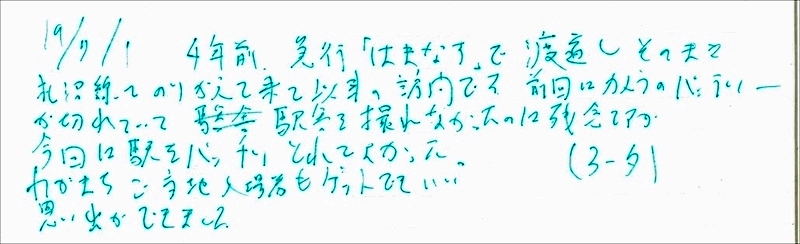 19/7/1 4年前、急行「はまなす」で渡道しそのまま
札沼線にのりかえて来て以来の訪問です 前回はカメラのバッテリー
が切れていて 駅舎を撮れなかったのは残念ですが
今回は駅をバッチリとれてよかった。
わがまちご当地入場券もゲットできていい
思い出ができました。
(ヨータ)